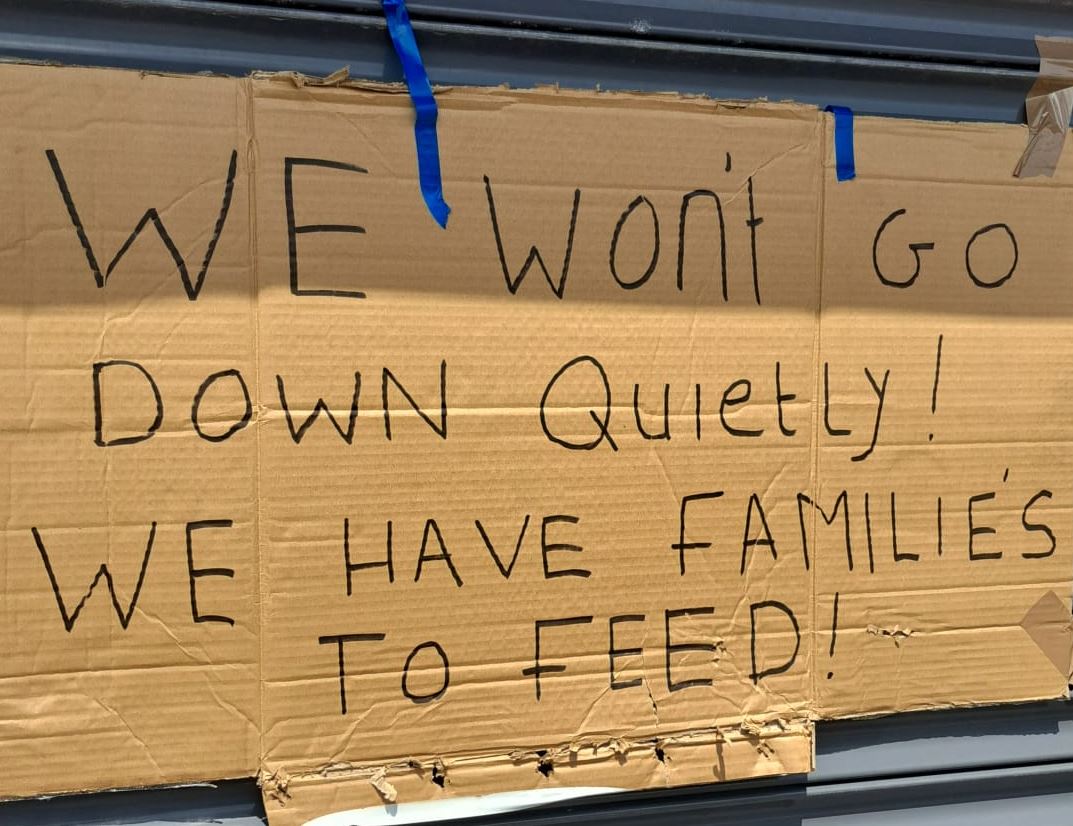 WE Won't GO
DOWN Quietly!
WE HAVE FAMILIE'S
TO FEED!